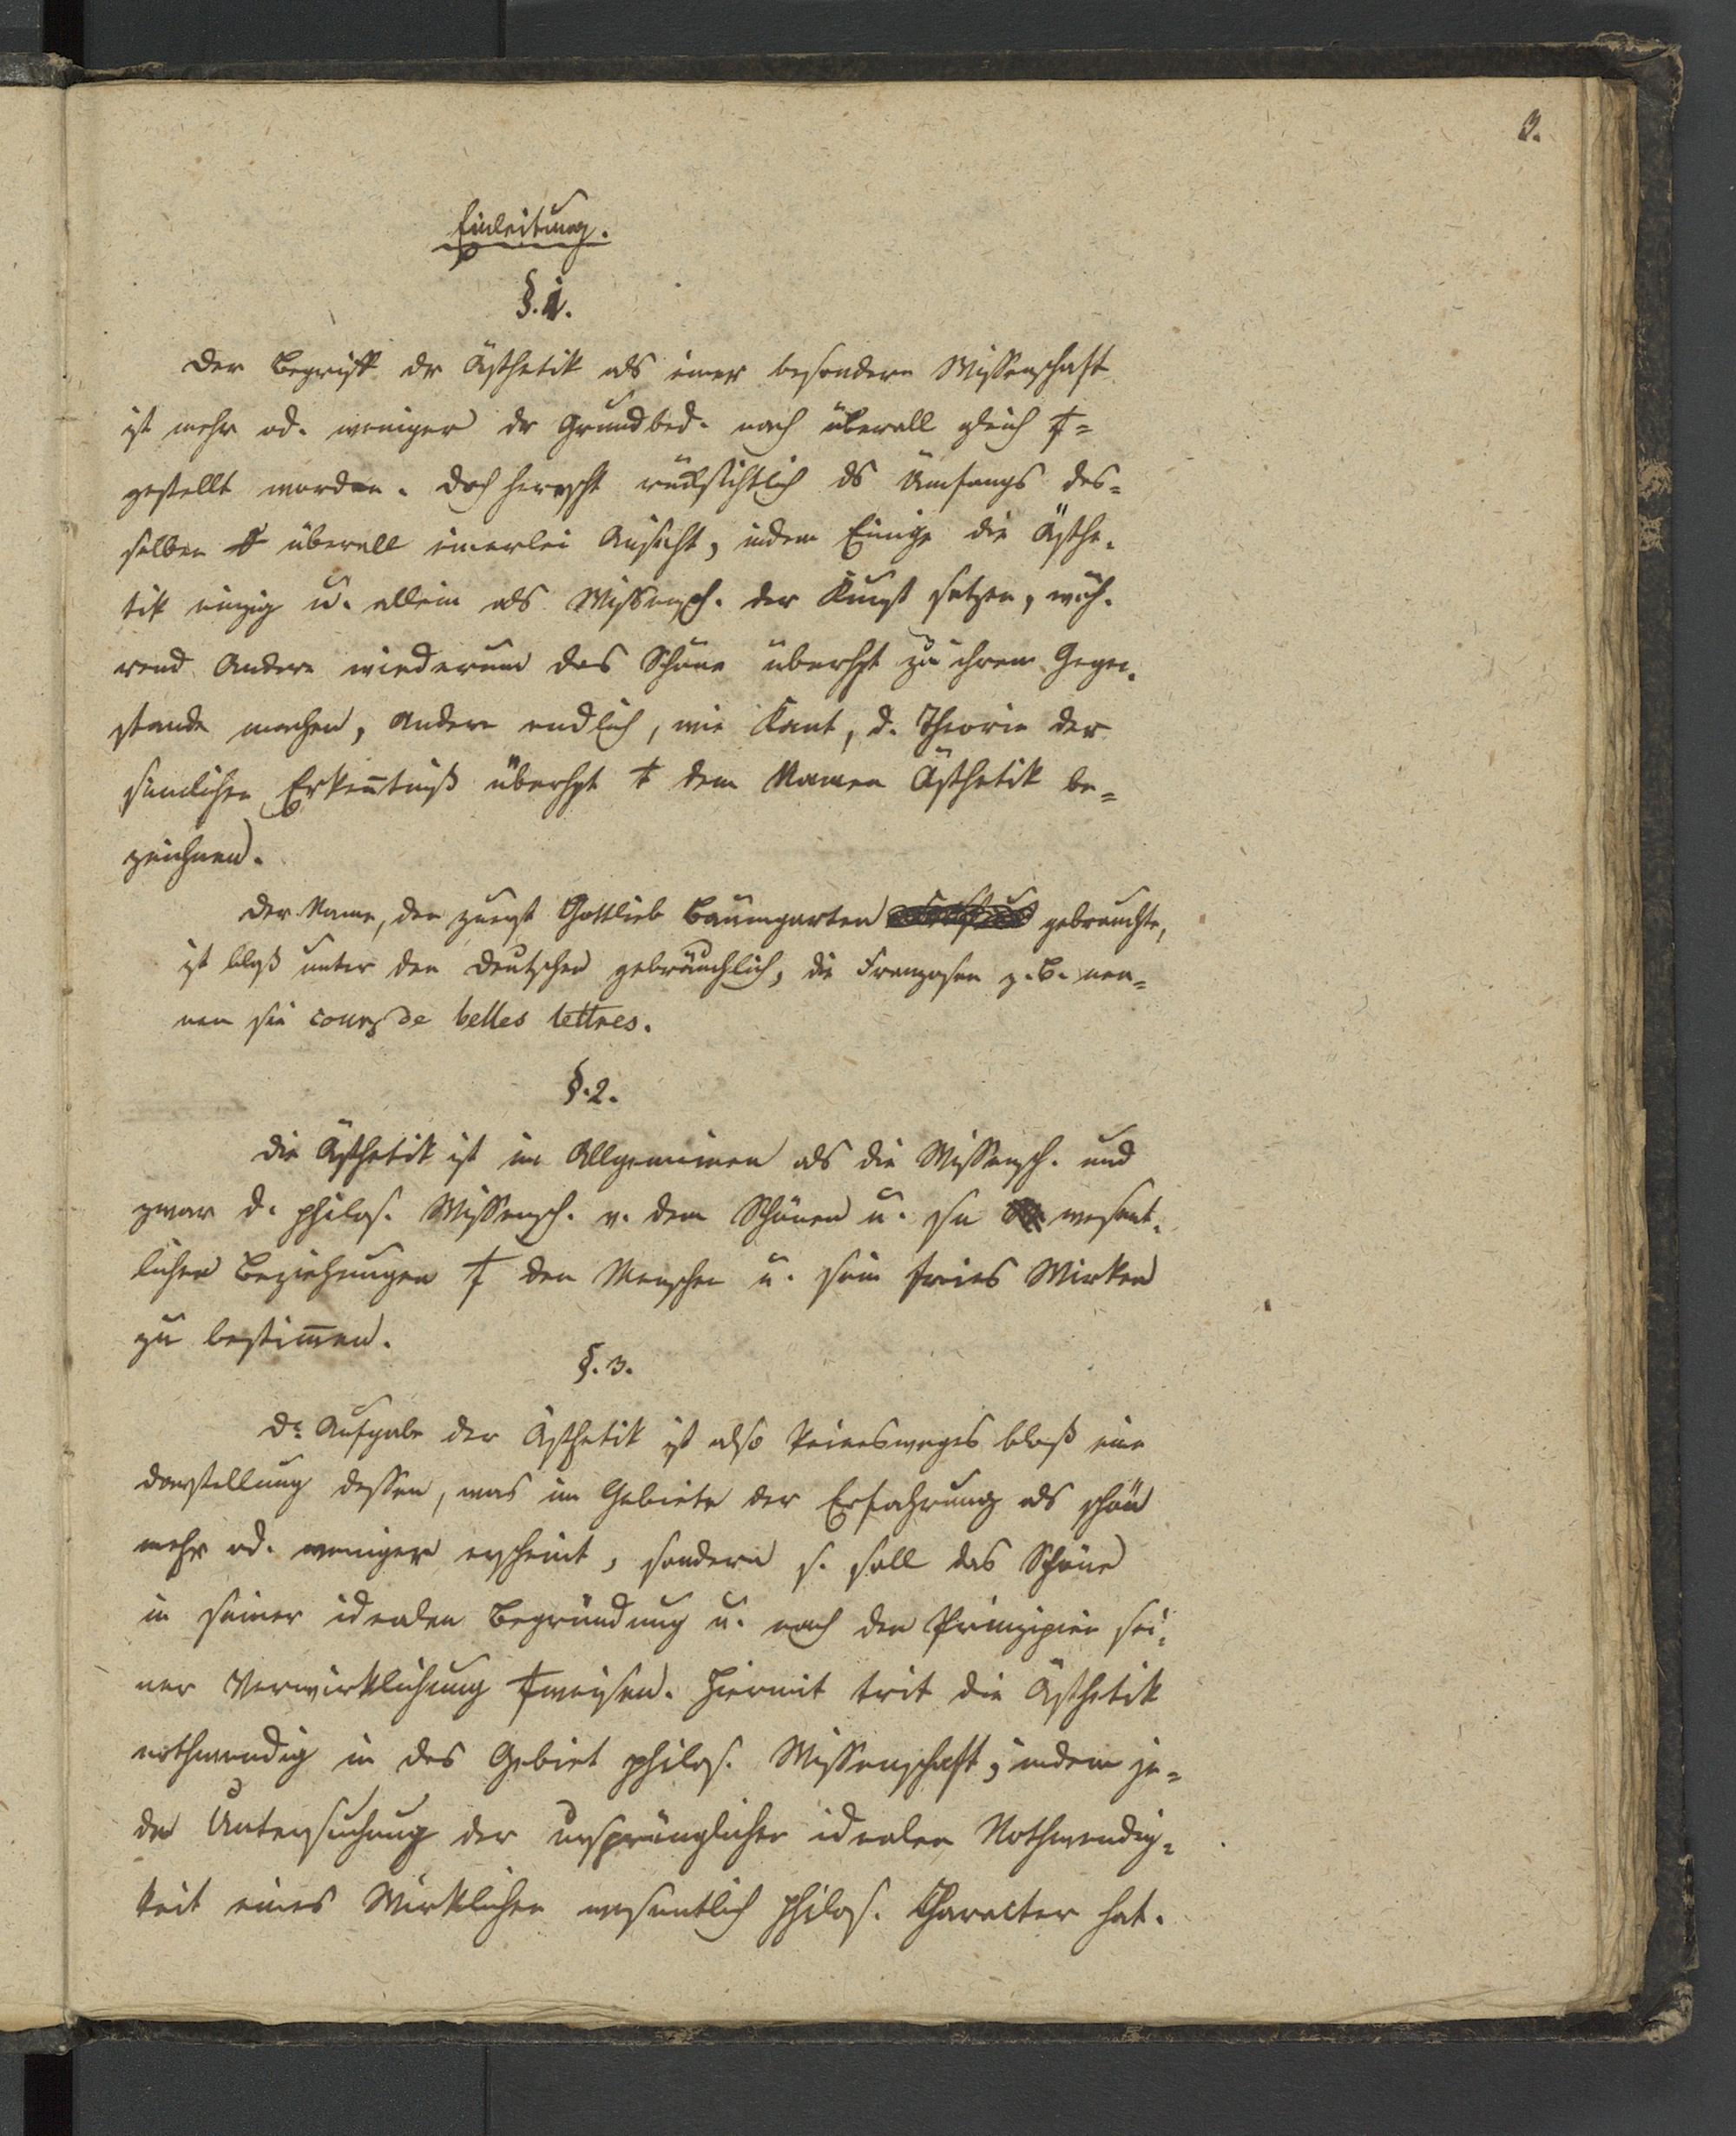 3.
Einleitung.
§. 1.
Der Begriff dr Ästhetik als einer besondern Wissenschaft
ist mehr od. weniger dr Grundbed. nach überall gleich =
gestellt worden. Doch herrscht rücksichtlich ds Umfangs des=
selben überall einerlei Ansicht, indem Einige die Ästhe-
tik einzig u. allein als Wissensch. der Kunst setzen, wäh-
rend Andere wiederum das Schöne überhpt zu ihrem Gegen-
stande machen, Andere endlich, wie Kant, d. Theorie der
sinnlichen Erkenntniß überhpt † dem Namen Ästhetik be=
zeichnen.
Der Name, den zuerst Gottlieb Baumgarten gebrauchte,
ist bloß unter den Deutschen gebräuchlich, die Franzosen z. B. nen=
nen sie cours de belles lettres.
§. 2.
Die Ästhetik ist im Allgemeinen als die Wissensch. und
zwar d. philos. Wissensch. v. dem Schönen u. sn wesent-
lichen Beziehungen † den Menschen u. sein freies Wirken
zu bestim̄en.
§. 3.
De Aufgabe der Ästhetik ist also keinesweges bloß eine
Darstellung dessen, was im Gebiete der Erfahrung als schön
mehr od. weniger erscheint, sondern s. soll das Schöne
in seiner idealen Begründung u. nach den Prinzipien sei-
ner Verwirklichung †weisen. Hiermit trit die Ästhetik
nothwendig in das Gebiet philos. Wissenschaft, indem je=
de Untersuchung der ursprünglichen idealen Nothwendig=
keit eines Wirklichen wesentlich philos. Character hat.